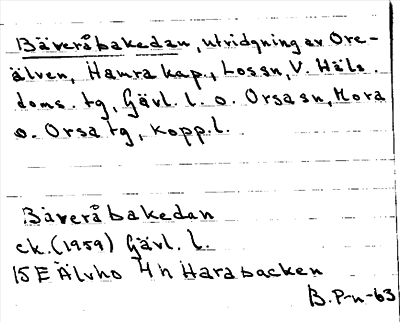 Bäveråbakedan, utvidgning av Ore-
älven, Hamra kap., Lossn, V. Häls.
doms. tg, Gävl. l. o. Orsa sn, Mora
o. Orsa tg, Kopp. l.
Bäveråbakedan
ek. (1959) Gävl. l.
15E Älvho 4h Harabacken
B. P-n-63